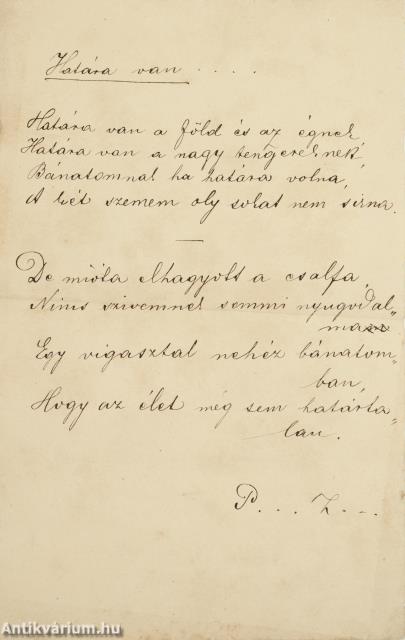 Határa van . . . .
Határa van a föld és az égnek
Határa van a nagy tengereknek,
Bánatomnak ha határa volna,
A két szemem oly sokat nem sirna.
De mióta elhagyott a csalfa,
Nincs szivemnek semmi nyugodal-
ma
Egy vigasztal nehéz bánatom-
ban,
Hogy az élet még sem határta-
lan.
P. . . . Z. - --
Antikvárium.hu